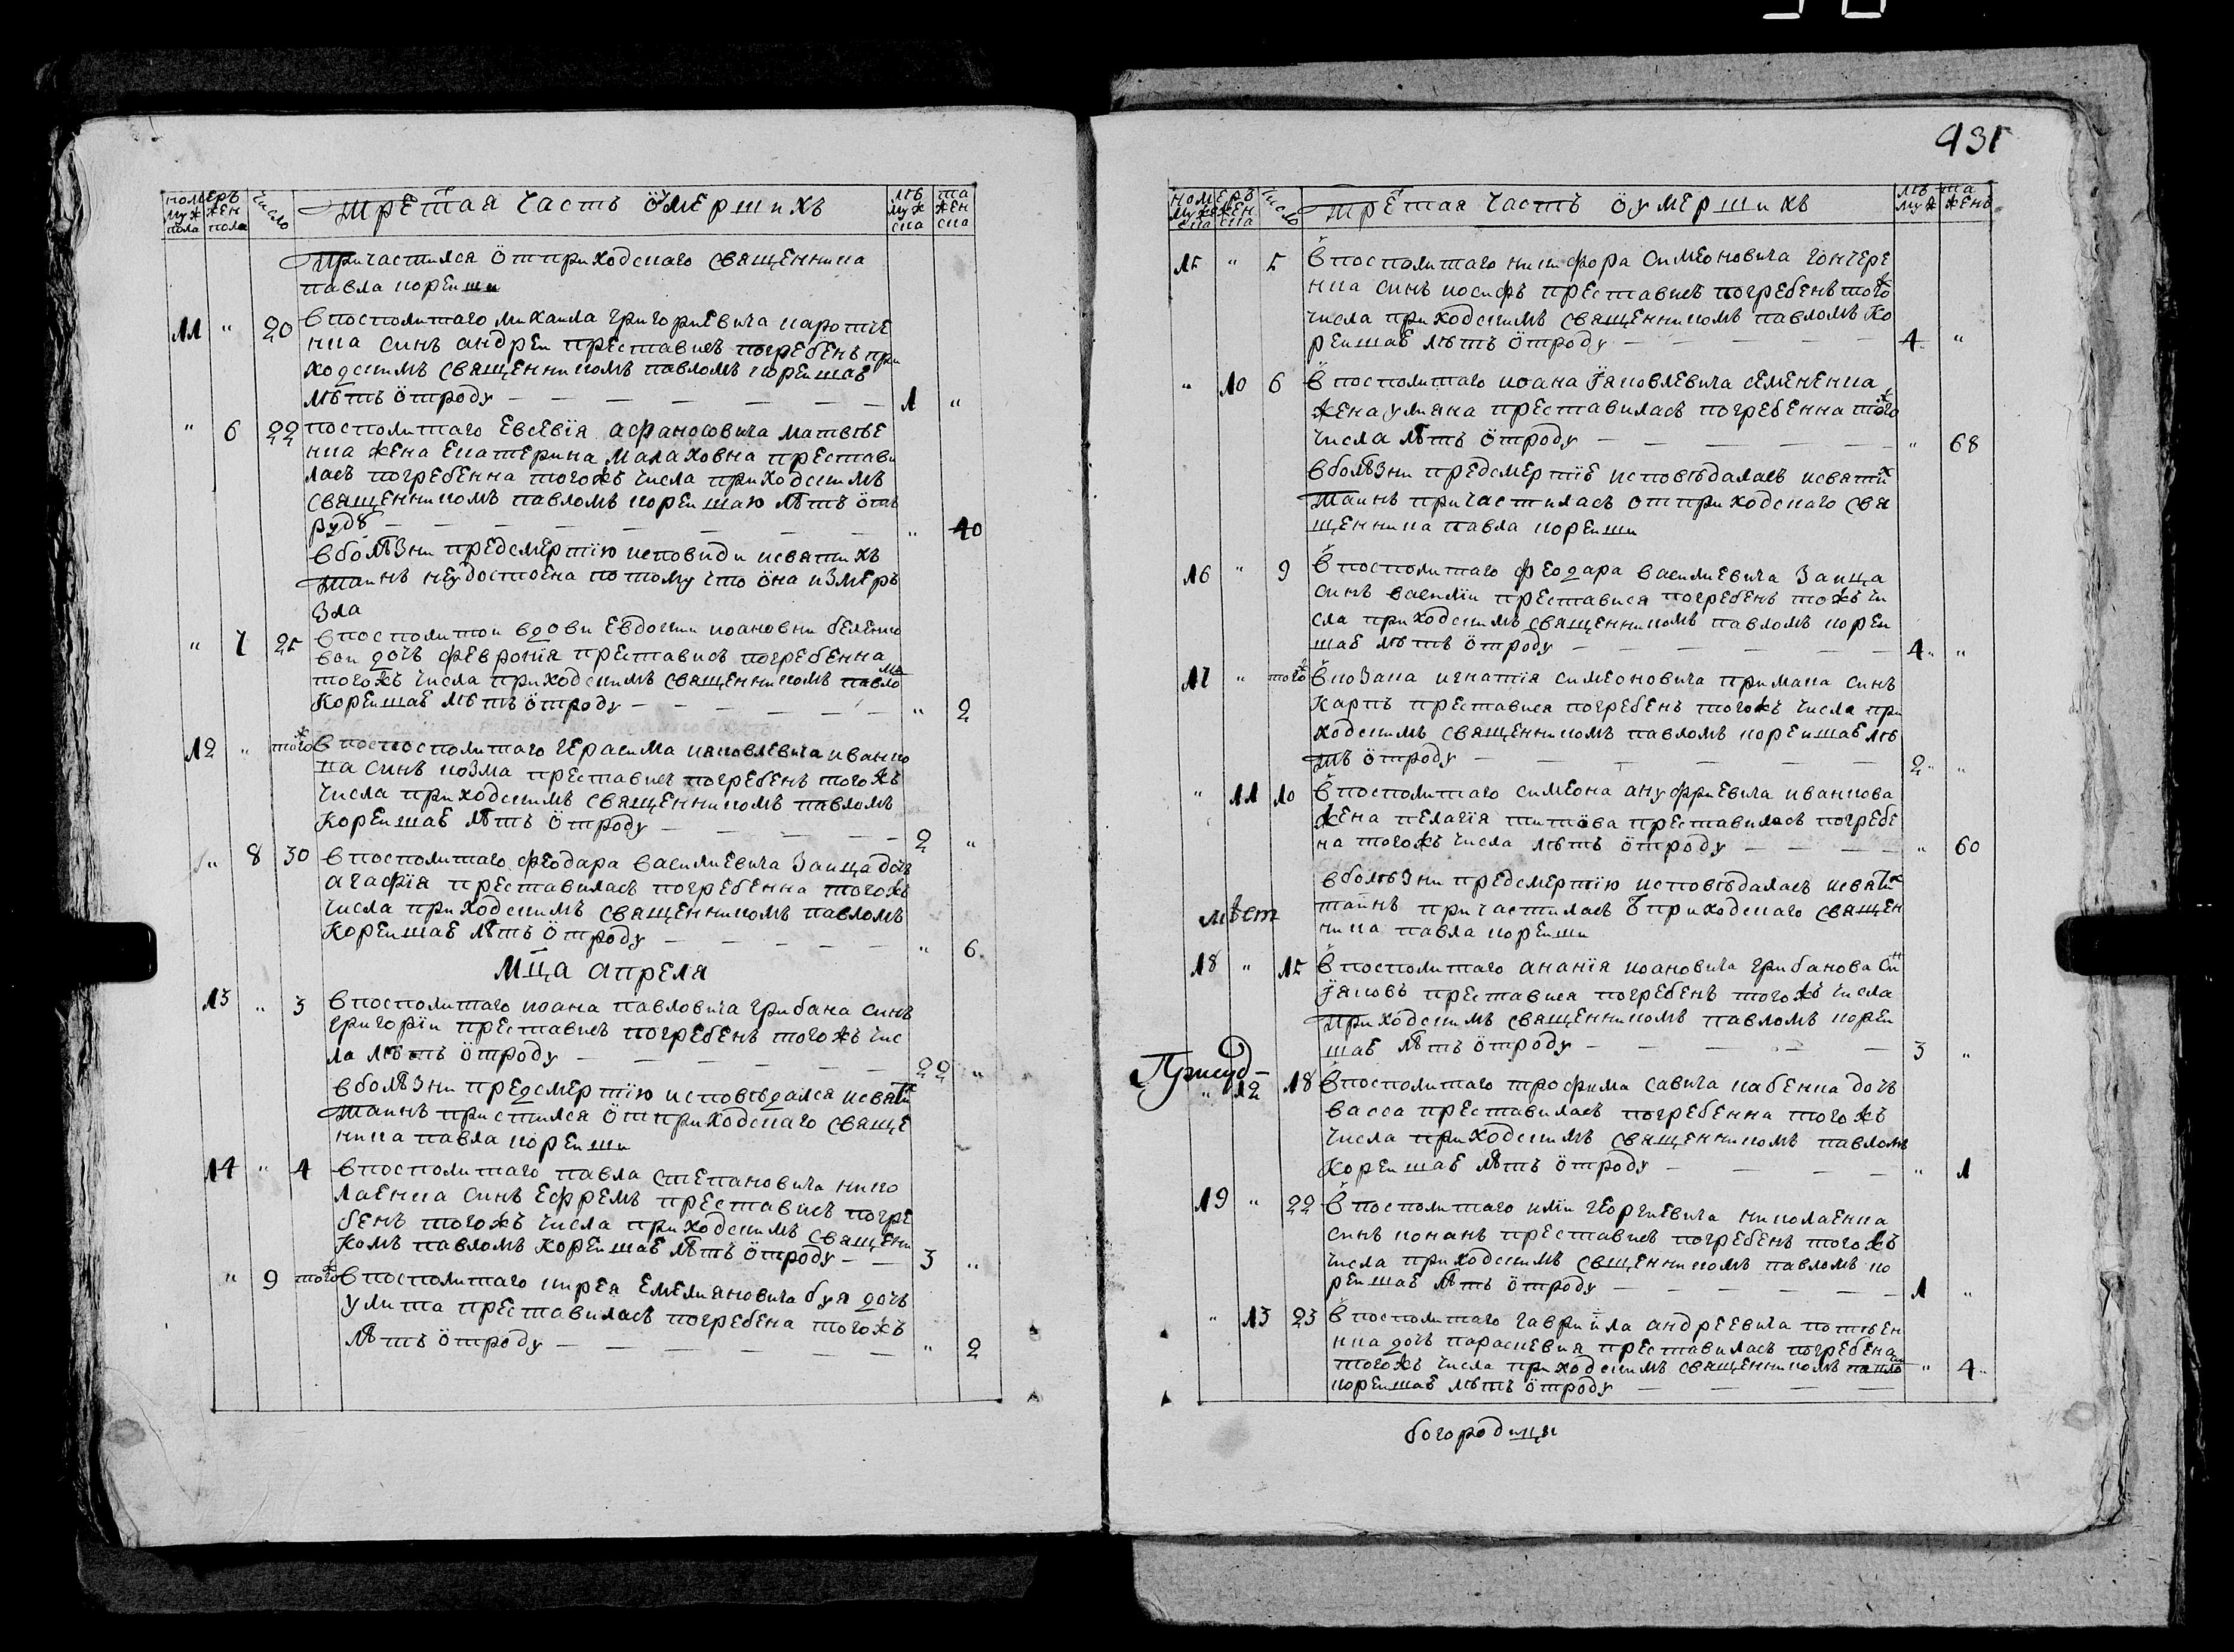 номеръ число третая часть ö умершихъ лѣта
муж жен муж жен
пола пола ска ска
причастился öтприходскаго священника
павла корейши
11 " 20 впосполитаго михаила григориевича каротче
нка синъ андреи преставися погребенъ при
ходскимъ священникомъ павломъ корейшаѣ
лѣтъ öтроду — — — — — — 1 "
" 6 22 посполитаго евсевія афанасовича матвѣе
нка жена екатерина малаховна престави
лась погребенна тогожъ числа приходскимъ
священникомъ павломъ корейшаю лѣтъ öтъ
руду — — — — — — " 40
вболѣзни предсмертїю исповиди исвятихъ
таинъ неудостоена потому что öна измеръ
зла
" 7 25 впосполитои вдови евдокии иоановни беленко
вои дочъ февронїя преставись погребенна
тогожъ числа приходскимъ священникомъ павломъ
корейшаѣ лѣтъ öтроду — — — — — " 2
12 " тогож в поспосполитаго герасима иаковлевича иванко
ка синъ козма преставися погребенъ тогожъ
числа приходскимъ священникомъ павломъ
корейшаѣ лѣтъ öтроду — — — — — 2 "
" 8 30 впосполитаго феодара василиевича заица дочъ
агафїя преставиласъ погребенна тогожъ
числа приходскимъ священникомъ павломъ
корейшаѣ лѣтъ öтроду — — — — — " 6
Мца апреля
13 " 3 впосполитаго иоана павловича грибана синъ
григорїи преставися погребенъ тогожъ чис
ла лѣтъ öтроду — — — — — 22 "
вболѣзни предсмертїю исповѣдался исвятих
таинъ пристился öтприходскаго свяще
ника павла корейши
14 " 4 впосполитаго павла степановича нико
лаенка синъ ефремъ преставись погре
бенъ тогожъ числа приходскимъ священи
комъ павломъ корейшаѣ лѣтъ öтроду — — 3 "
" 9 тогож впосполитаго кирея емелиановича буя дочъ
улита преставиласъ погребена тогожъ
лѣтъ öтроду — — — — — — " 2
931
номеръ число третая часть ö умершихъ лѣта
муж жен муж женъ
ска ска
15 " 5 в посполитаго никифора симеоновича гончере
нка синъ иосифъ преставись погребенъ тогож
числа приходскимъ священникомъ павломъ ко
реишаѣ лѣтъ öтроду — — — — — 4 "
" 10 6 в посполитаго иоана їаковлевича семененка
жена улиана преставиласъ погребенна тогож
числа лѣтъ öтроду — — — — — " 68
вболѣзни предсмертїе исповѣдаласъ исвятих
таинъ причастиласъ отприходскаго свя
щенника павла корейши
16 " 9 в посполитаго феодара василиевича заица
синъ василїи преставися погребенъ тожъ чи
сла приходскимъ священникомъ павломъ корей
шаѣ лѣтъ öтроду — — — — — 4 "
17 " тогож в козака игнатїя симеоновича примака синъ
карпъ преставися погребенъ тогожъ числа при
ходскимъ священникомъ павломъ корейшаѣ лѣ
тъ öтроду — — — — — — 2 "
" 11 10 в посполитаго симеона ануфриевича иванкова
жена пелагїя титова преставиласъ погребе
на тогожъ числа лѣтъ öтроду — — — — " 60
вболѣзни предсмертїю исповѣдаласъ исвятих
таинъ причастиласъ ѿ приходскаго священ
ника павла корейши
18 " 15 в посполитаго ананїя иоановича грибанова син
їаковъ преставися погребенъ тогожъ числа
приходскимъ священникомъ павломъ корей
шаѣ лѣтъ öтроду — — — — — 3 "
" 12 18 впосполитаго трофима савича кабенка дочъ
васса преставиласъ погребенна тогожъ
числа приходскимъ священникомъ павломъ
корейшаѣ лѣтъ öтроду — — — — " 1
19 " 22 в посполитаго илїи георгиевича николаенка
синъ конанъ преставися погребенъ тогожъ
числа приходскимъ свщенникомъ павломъ ко
реишаѣ лѣтъ öтроду — — — — — 1 "
" 13 23 в посполитаго гавриїла андреевича потѣен
нка дочъ параскевия преставиласъ погребена
тогожъ числа приходскимъ священникомъ павломъ " 4
корейшаѣ лѣтъ öтроду — — — —
богородици